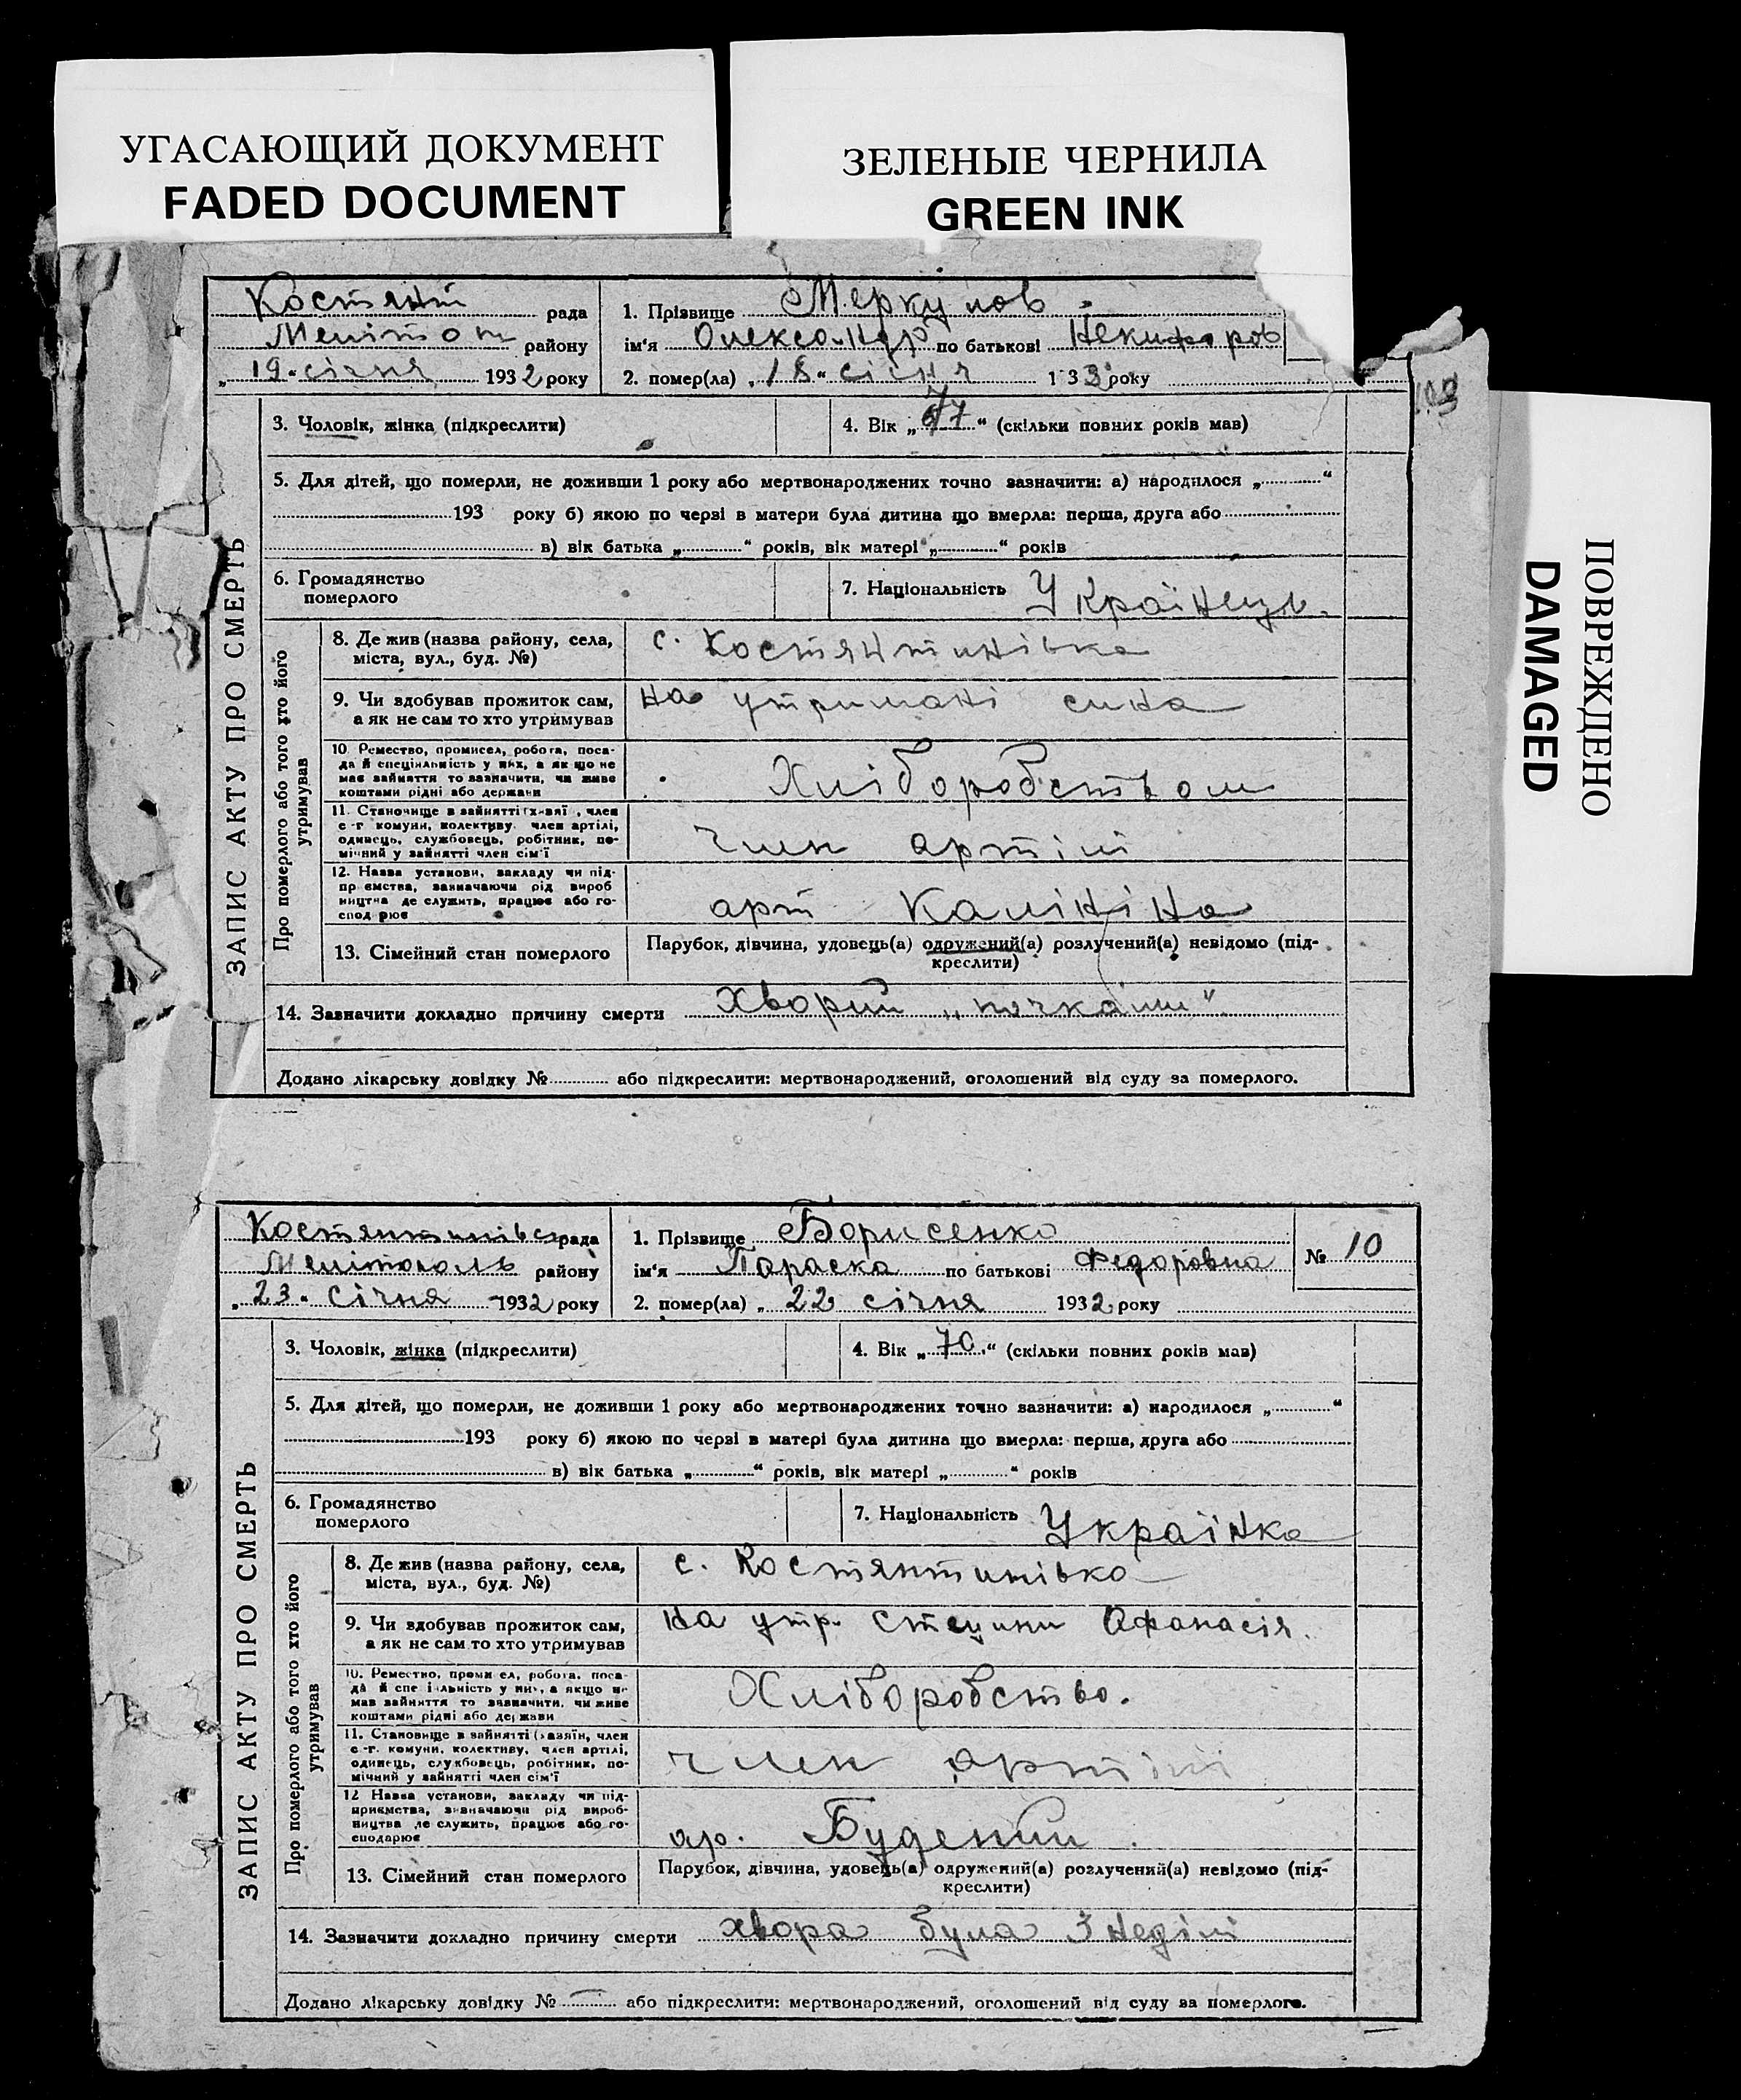 УГАСАЮЩИЙ ДОКУМЕНТ
FADED DOCUMENT
ЗЕЛЕНЫЕ ЧЕРНИЛА
GREEN INK
ПОВРЕЖДЕНО
DAMAGED
Костянт рада
Мелітоп району
„19“ січня 1932 року
1. Прізвище Меркулов
ім'я Олександр по батькові Некифоров
2. помер(ла) „18“ січня 1 33 року
ЗАПИС АКТУ ПРО СМЕРТЬ
3. Чоловік, жінка (підкреслити)
4. Вік „77“ (скільки повних років мав)
5. Для дітей, що померли, не доживши 1 року або мертвонароджених точно зазначити: а) народилося „ “
193 року б) якою по черзі в матери була дитина що вмерла: перша, друга або
в) вік батька „ “ років, вік матері „ “ років
6. Громадянство
померлого
7. Національність Українець.
Про померлого або того хто його
утримував
8. Де жив (назва району, села,
міста, вул., буд. №)
с. Костянтинівка
9. Чи здобував прожиток сам,
а як не сам то хто утримував
на утримані сина
10. Ремество, промисел, робота, поса-
да й спеціяльність у них, а якщо не
має зайняття то зазначити, чи живе
коштами рідні або держави
Хліборобством
11. Становище в зайнятті (х зяї , член
с -г комуни, колективу. член артілі,
одинець, службовець, робітник, по-
мічний у зайнятті член сім'ї
член артілі
12. Назва установи, закладу чи під-
пр ємства, зазначаючи рід вироб
ництва де служить, працює або го-
спод рює
арт Калініна
13. Сімейний стан померлого
Парубок, дівчина, удовець(а) одружений(а) розлучений(а) невідомо (під-
креслити)
14. Зазначити докладно причину смерти Хворий „почками“
Додано лікарську довідку № або підкреслити: мертвонароджений, оголошений від суду за померлого.
Костянтинівс рада
Мелітополь району
„23“ січня 1932 року
1. Прізвище Борисенко
ім'я Параска по батькові Федоровна
2. помер(ла) „22 січня 1932 року
№ 10
ЗАПИС АКТУ ПРО СМЕРТЬ
3. Чоловік, жінка (підкреслити)
4. Вік „70“ (скільки повних років мав)
5. Для дітей, що померли, не доживши 1 року або мертвонароджених точно зазначити: а) народилося „ “
193 року б) якою по черзі в матері була дитина що вмерла: перша, друга або
в) вік батька „ “ років, вік матері „ “ років
6. Громадянство
померлого
7. Національність Українка
Про померлого або того хто його
утримував
8. Де жив (назва району, села,
міста, вул., буд. №)
с. Костянтинівка
9. Чи здобував прожиток сам,
а як не сам то хто утримував
на утр. Стецини Афанасія.
10. Ремество, проми ел, робота, поса-
да й спе і льність у них, а якщо не
мав зайняття то зазначити, чи живе
коштами рідні або держави
Хліборобство.
11. Становище в зайнятті (хазяїн, член
с -г. комуни, колективу, член артілі,
одинець, службовець, робітник, по-
мічний у зайнятті член сім'ї
член артілі
12 Назва установи, закладу чи під-
приємства, зазначаючи рід вироб-
ництва де служить, працює або го-
сподарює
ар. Буденний.
13. Сімейний стан померлого
Парубок, дівчина, удовець(а) одружений(а) розлучений(а) невідомо (під-
креслити)
14. Зазначити докладно причину смерти хвора була 3 неділі
Додано лікарську довідку № або підкреслити: мертвонароджений, оголошений від суду за померлого.